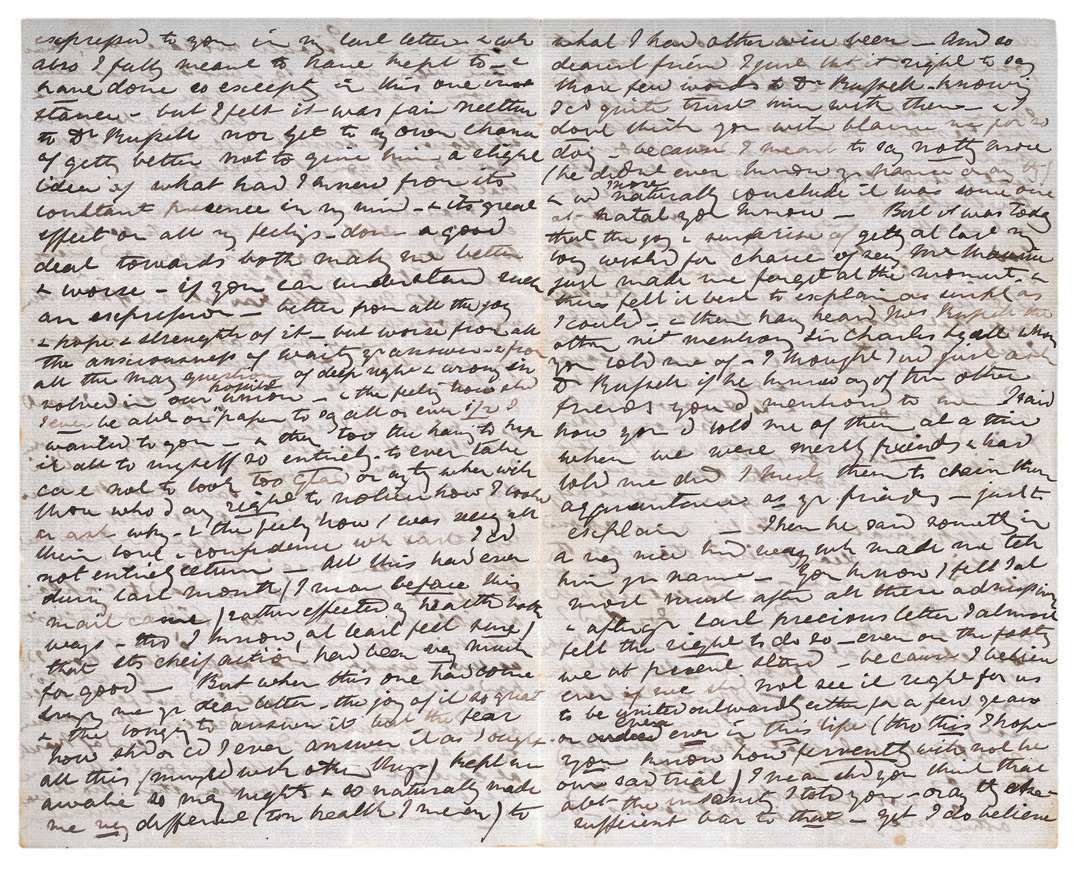 expressed to you in my last letter & wh
also I fully meant to have kept to - &
have done so except in this one in
stance - but I felt it was fair neither
to Dr Russell nor yet to my own chance
of gettg better not to give him a slight
idea of what had I knew from its
constant presence in my mind - & its great
effect on all my feelings - done a good
deal towards both makg me better
& worse - if you can understand such
an expression - better from all the joy
& hope & strength of it - but worse from all
the anxiousness of waitg yr answer - & from
all the many questions of deep right & wrong in
volved in our possible union - & the feelg how shd
I ever be able on paper to say all or even if I
wanted to you - & then too the havg to keep
it all to myself so entirely - to ever take
care not to look too glad or when with
those who'd any right to notice how I looked
or ask why - & the feelg how I was all
their love & confidence wh I cd
not entirely return - All this had even
during last month (I mean before this
mail came) rather effected my health both
ways - tho' I know, at least feel sure,
that its cheif action had been very much
for good - But when this one had come
brings me yr dear letter - the joy of it so great
& the longg to answer it but the fear
how shd or cd I ever answer it as I ought
all this (mingled with other thgs) kept me
awake so many nights & so naturally made
me very different (to health I mean) to
what I had otherwise been - And so
dearest friend I just tht it right to say
those few words to Dr Russell - knowing
I cd quite trust him with them - & I
dont think you will blame me for so
doing - because I meant to say nothg more
(he did not ever know yr name or any thg)
& wd more naturally conclude it was some one
at natal you know - But it was today
that the joy & surprise of gettg at last my
long wished for chance of seeg Mr Maurice
just made me forget at the moment - &
then felt it best to explain as simply as
I could - & then havg heard Miss Russell the
other nit mentiong Sir Charles Lyell whom
you told me of - I thought I wd just ask
Dr Russell if he knew any of the other
friends you'd mentioned to me - I said
how you'd told me of them at a time
when we were merely friends & had
told me did I meet them to claim their
acquaintance as yr friends - just
explain - Then he said something in
a very nice kind way wh made me tell
him yr name - You know I felt
most must after all these admissions
& after yr last precious letter I almost
felt the right to do so - even on the footg
we at present stand - because I believe
even if we shd not see it right for us
to be united outwardly either for a few years
or even ever in this life (tho this I hope
you know how fervently will not be
our sad trial) I mean shd you think that
abt the insanity I told you - or any thg else
sufficient bar to that - yet I do believe